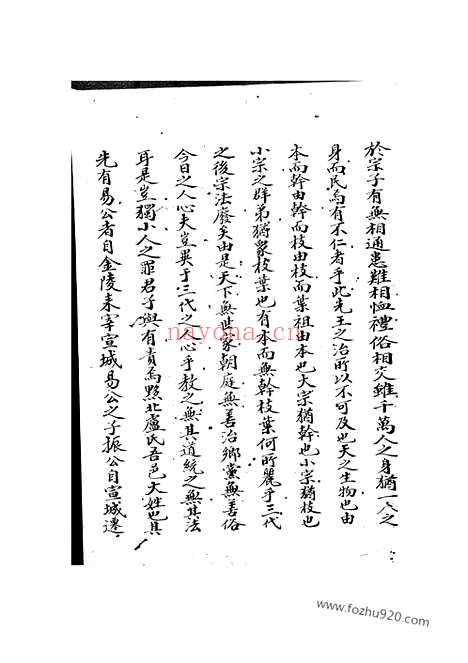 於宗子有無相通患難相恤禮俗相交雖千萬人之身猶一人之
身而民焉有不仁者乎此先王之治所以不可及也天之生物也由
本而幹由幹而枝由枝而葉祖由本也大宗猶幹也小宗猶枝也
小宗之群弟猶眾枝葉也有本而無幹枝葉何所麗乎三代
之後宗法廢矣由是天下無世家朝庭無善治鄉黨無善俗
今日之人心夫豈異于三代之人心乎教之無其道統之無其法
耳是豈獨小人之罪君子與有責焉黟北盧氏吾邑大姓也其
先有易公者自金陵来宰宣城易公之子振公自宣城遷
nayona.cn
www.fozhu920.com